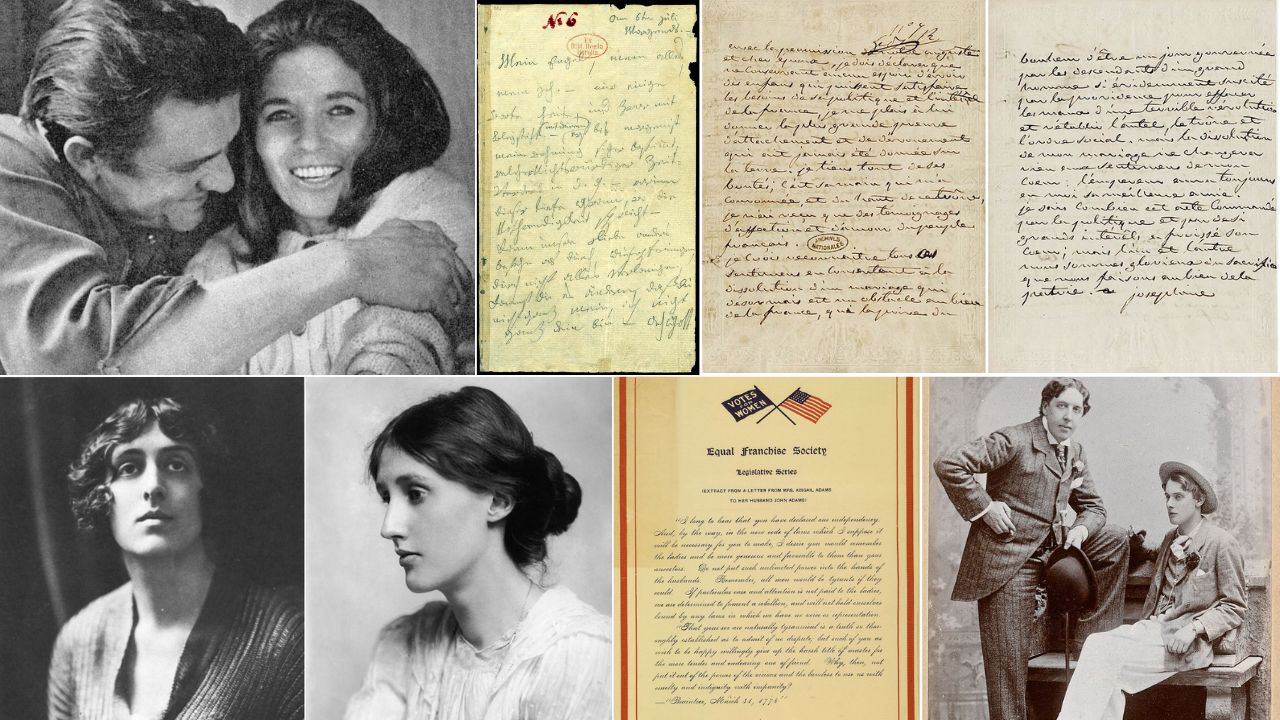 No 6
am 6ten Juli
Morgends. –
Mein Engel, mein alles,
mein Ich. – nur einige
Worte heute, und zwar mit
avec la permission
et cher epoux, je dois declarer que
ne conservant aucun espoir d'avoir
des enfans qui puissent satisfaire
les besoins de sa politique et l'interet
de la france, je me plais a lui
donner la plus grande preuve
d'attachement et de devouement
qui ait jamais été donnée sur
la terre. je tiens tout de ses
bontés; c'est sa main qui m'a
couronnée, et du haut de ce trone,
je n'ai reçu que des temoignages
d'affection et d'amour du peuple
français.
ARCHIVES NATIONALES
je crois reconnoitre tous ces
sentimens en consentant à la
dissolution d'un mariage qui
desormais est un obstacle au bien
de la france, qui la prive du
bonheur d'être un jour gouvernée
par les descendans d'un grand
homme si evidemment suscité
par la providence pour effacer
les maux d'une terrible revolution
et rétablir l'autel, le trône et
l'ordre social. mais la dissolution
de mon mariage ne changera
rien aux sentimens de mon
coeur; l'empereur aura toujours
en moi sa meilleure amie.
je sais combien cet acte commandé
par la politique et par de si
grands interets, a froissé son
coeur; mais l'un et l'autre
nous sommes glorieux du sacrifice
que nous faisons au bien de la
patrie. joséphine
VOTES FOR WOMEN
Equal Franchise Society
Legislative Series
(EXTRACT FROM A LETTER FROM MRS. ABIGAIL ADAMS
TO HER HUSBAND JOHN ADAMS)
"I long to hear that you have declared our independency.
And, by the way, in the new code of laws which I suppose it
will be necessary for you to make, I desire you would remember
the ladies and be more generous and favorable to them than your
ancestors. Do not put such unlimited power into the hands of
the husbands. Remember, all men would be tyrants if they
could. If particular care and attention is not paid to the ladies,
we are determined to foment a rebellion, and will not hold ourselves
bound by any laws in which we have no voice or representation.
"That your sex are naturally tyrannical is a truth so thor-
oughly established as to admit of no dispute; but such of you as
wish to be happy willingly give up the harsh title of master for
the more tender and endearing one of friend. Why, then, not
put it out of the power of the vicious and the lawless to use us with
cruelty and indignity with impunity?
—"Braintree, March 31, 1776"